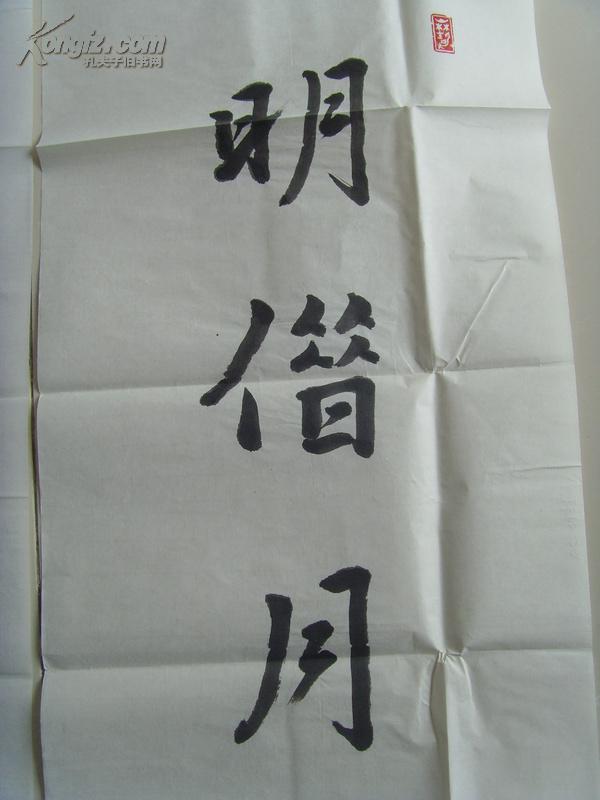 Kongfz.com
孔夫子旧书网
明
僭
月